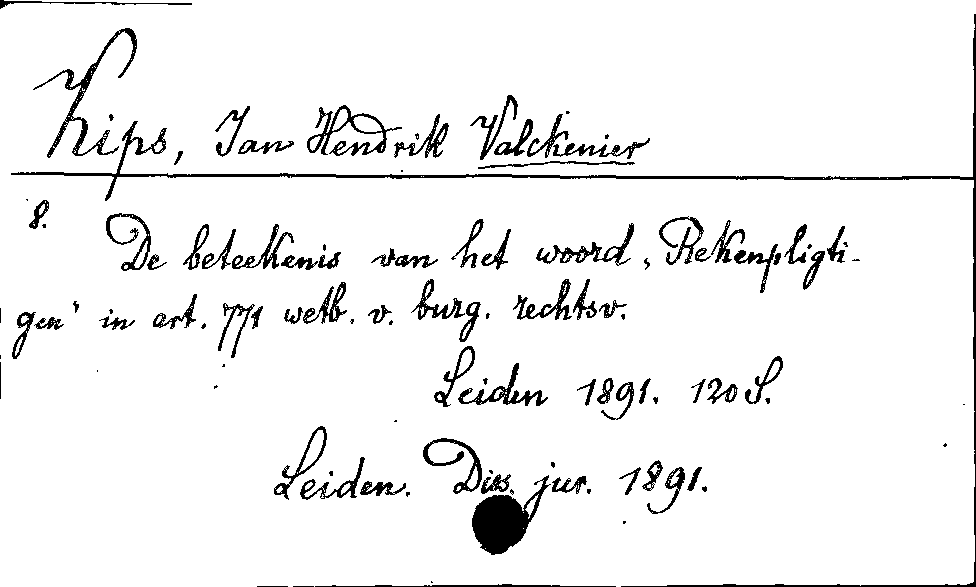 Kips, Jan Hendrik Valckenier
8.
De beteekenis van het woord „Rekenpligti-
gen" in art. 771 wetb. v. burg. rechtsv.
Leiden 1891. 120 S.
Leiden. Diss. jur. 1891.